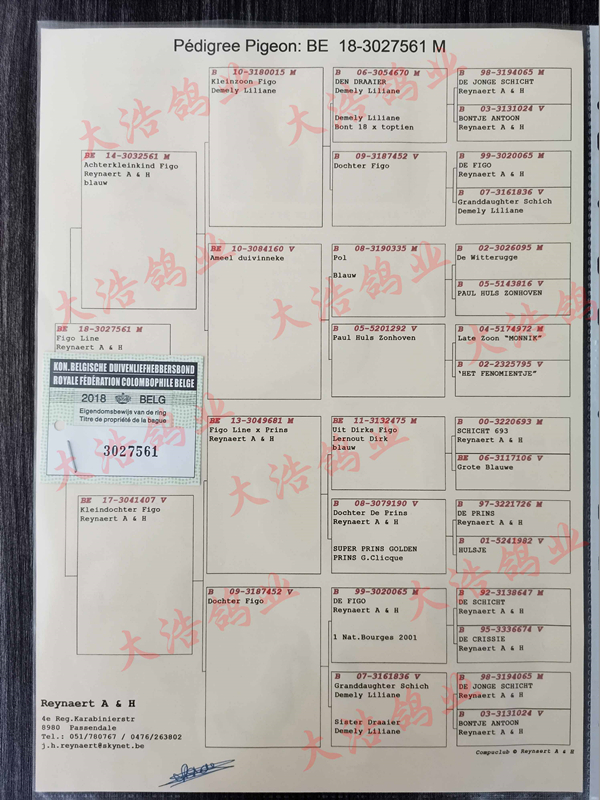 Pédigree Pigeon: BE 18-3027561 M
BE 18-3027561 M
Figo Line
Reynaert A & H
KON.BELGISCHE DUIVENLIEFHEBBERSBOND
ROYALE FÉDÉRATION COLOMBOPHILE BELGE
2018 BELG
Eigendomsbewijs van de ring
Titre de propriété de la bague
3027561
BE 14-3032561 M
Achterkleinkind Figo
Reynaert A & H
blauw
BE 17-3041407 V
Kleindochter Figo
Reynaert A & H
B 10-3180015 M
Kleinzoon Figo
Demely Liliane
BE 10-3084160 V
Ameel duivinneke
BE 13-3049681 M
Figo Line x Prins
Reynaert A & H
B 09-3187452 V
Dochter Figo
B 06-3054670 M
DEN DRAAIER
Demely Liliane
Demely Liliane
Bont 18 x toptien
B 09-3187452 V
Dochter Figo
B 08-3190335 M
Pol
Blauw
B 05-5201292 V
Paul Huls Zonhoven
BE 11-3132475 M
Uit Dirks Figo
Lernout Dirk
blauw
B 08-3079190 V
Dochter De Prins
Reynaert A & H
SUPER PRINS GOLDEN
PRINS G.Clicque
B 99-3020065 M
DE FIGO
Reynaert A & H
1 Nat.Bourges 2001
B 07-3161836 V
Granddaughter Schich
Demely Liliane
Sister Draaier
Demely Liliane
B 98-3194065 M
DE JONGE SCHICHT
Reynaert A & H
B 03-3131024 V
BONTJE ANTOON
Reynaert A & H
B 99-3020065 M
DE FIGO
Reynaert A & H
B 07-3161836 V
Granddaughter Schich
Demely Liliane
B 02-3026095 M
De Witterugge
B 05-5143816 V
PAUL HULS ZONHOVEN
B 04-5174972 M
Late Zoon "MONNIK"
B 02-2325795 V
'HET FENOMIENTJE"
B 00-3220693 M
SCHICHT 693
BE 06-3117106 V
Grote Blauwe
B 97-3221726 M
DE PRINS
Reynaert A & H
B 01-5241982 V
HULSJE
B 92-3138647 M
DE SCHICHT
Reynaert A & H
B 95-3336674 V
DE CRISSIE
Reynaert A & H
B 98-3194065 M
DE JONGE SCHICHT
Reynaert A & H
B 03-3131024 V
BONTJE ANTOON
Reynaert A & H
Reynaert A & H
4e Reg.Karabinierstr
8980 Passendale
Tel.: 051/780767 / 0476/263802
j.h.reynaert@skynet.be
Compuclub © Reynaert A & H
大浩鸽业
大浩鸽业
大浩鸽业
大浩鸽业
大浩鸽业
大浩鸽业
大浩鸽业
大浩鸽业
大浩鸽业
大浩鸽业